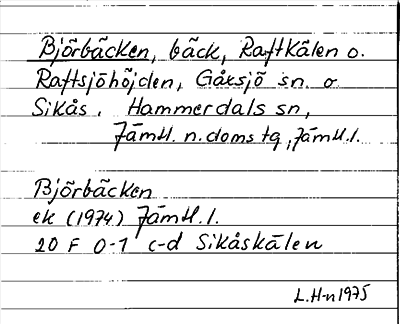 Björbäcken, bäck, Raftkälen o.
Raftsjöhöjden, Gåxsjö sn. o
Sikås, Hammerdals sn,
Jämtl. n. doms tg, Jämtl. l.
Björbäcken
ek (1974) Jämtl. l.
20 F 0-1 c-d Sikåskälen
L. H-n 1975